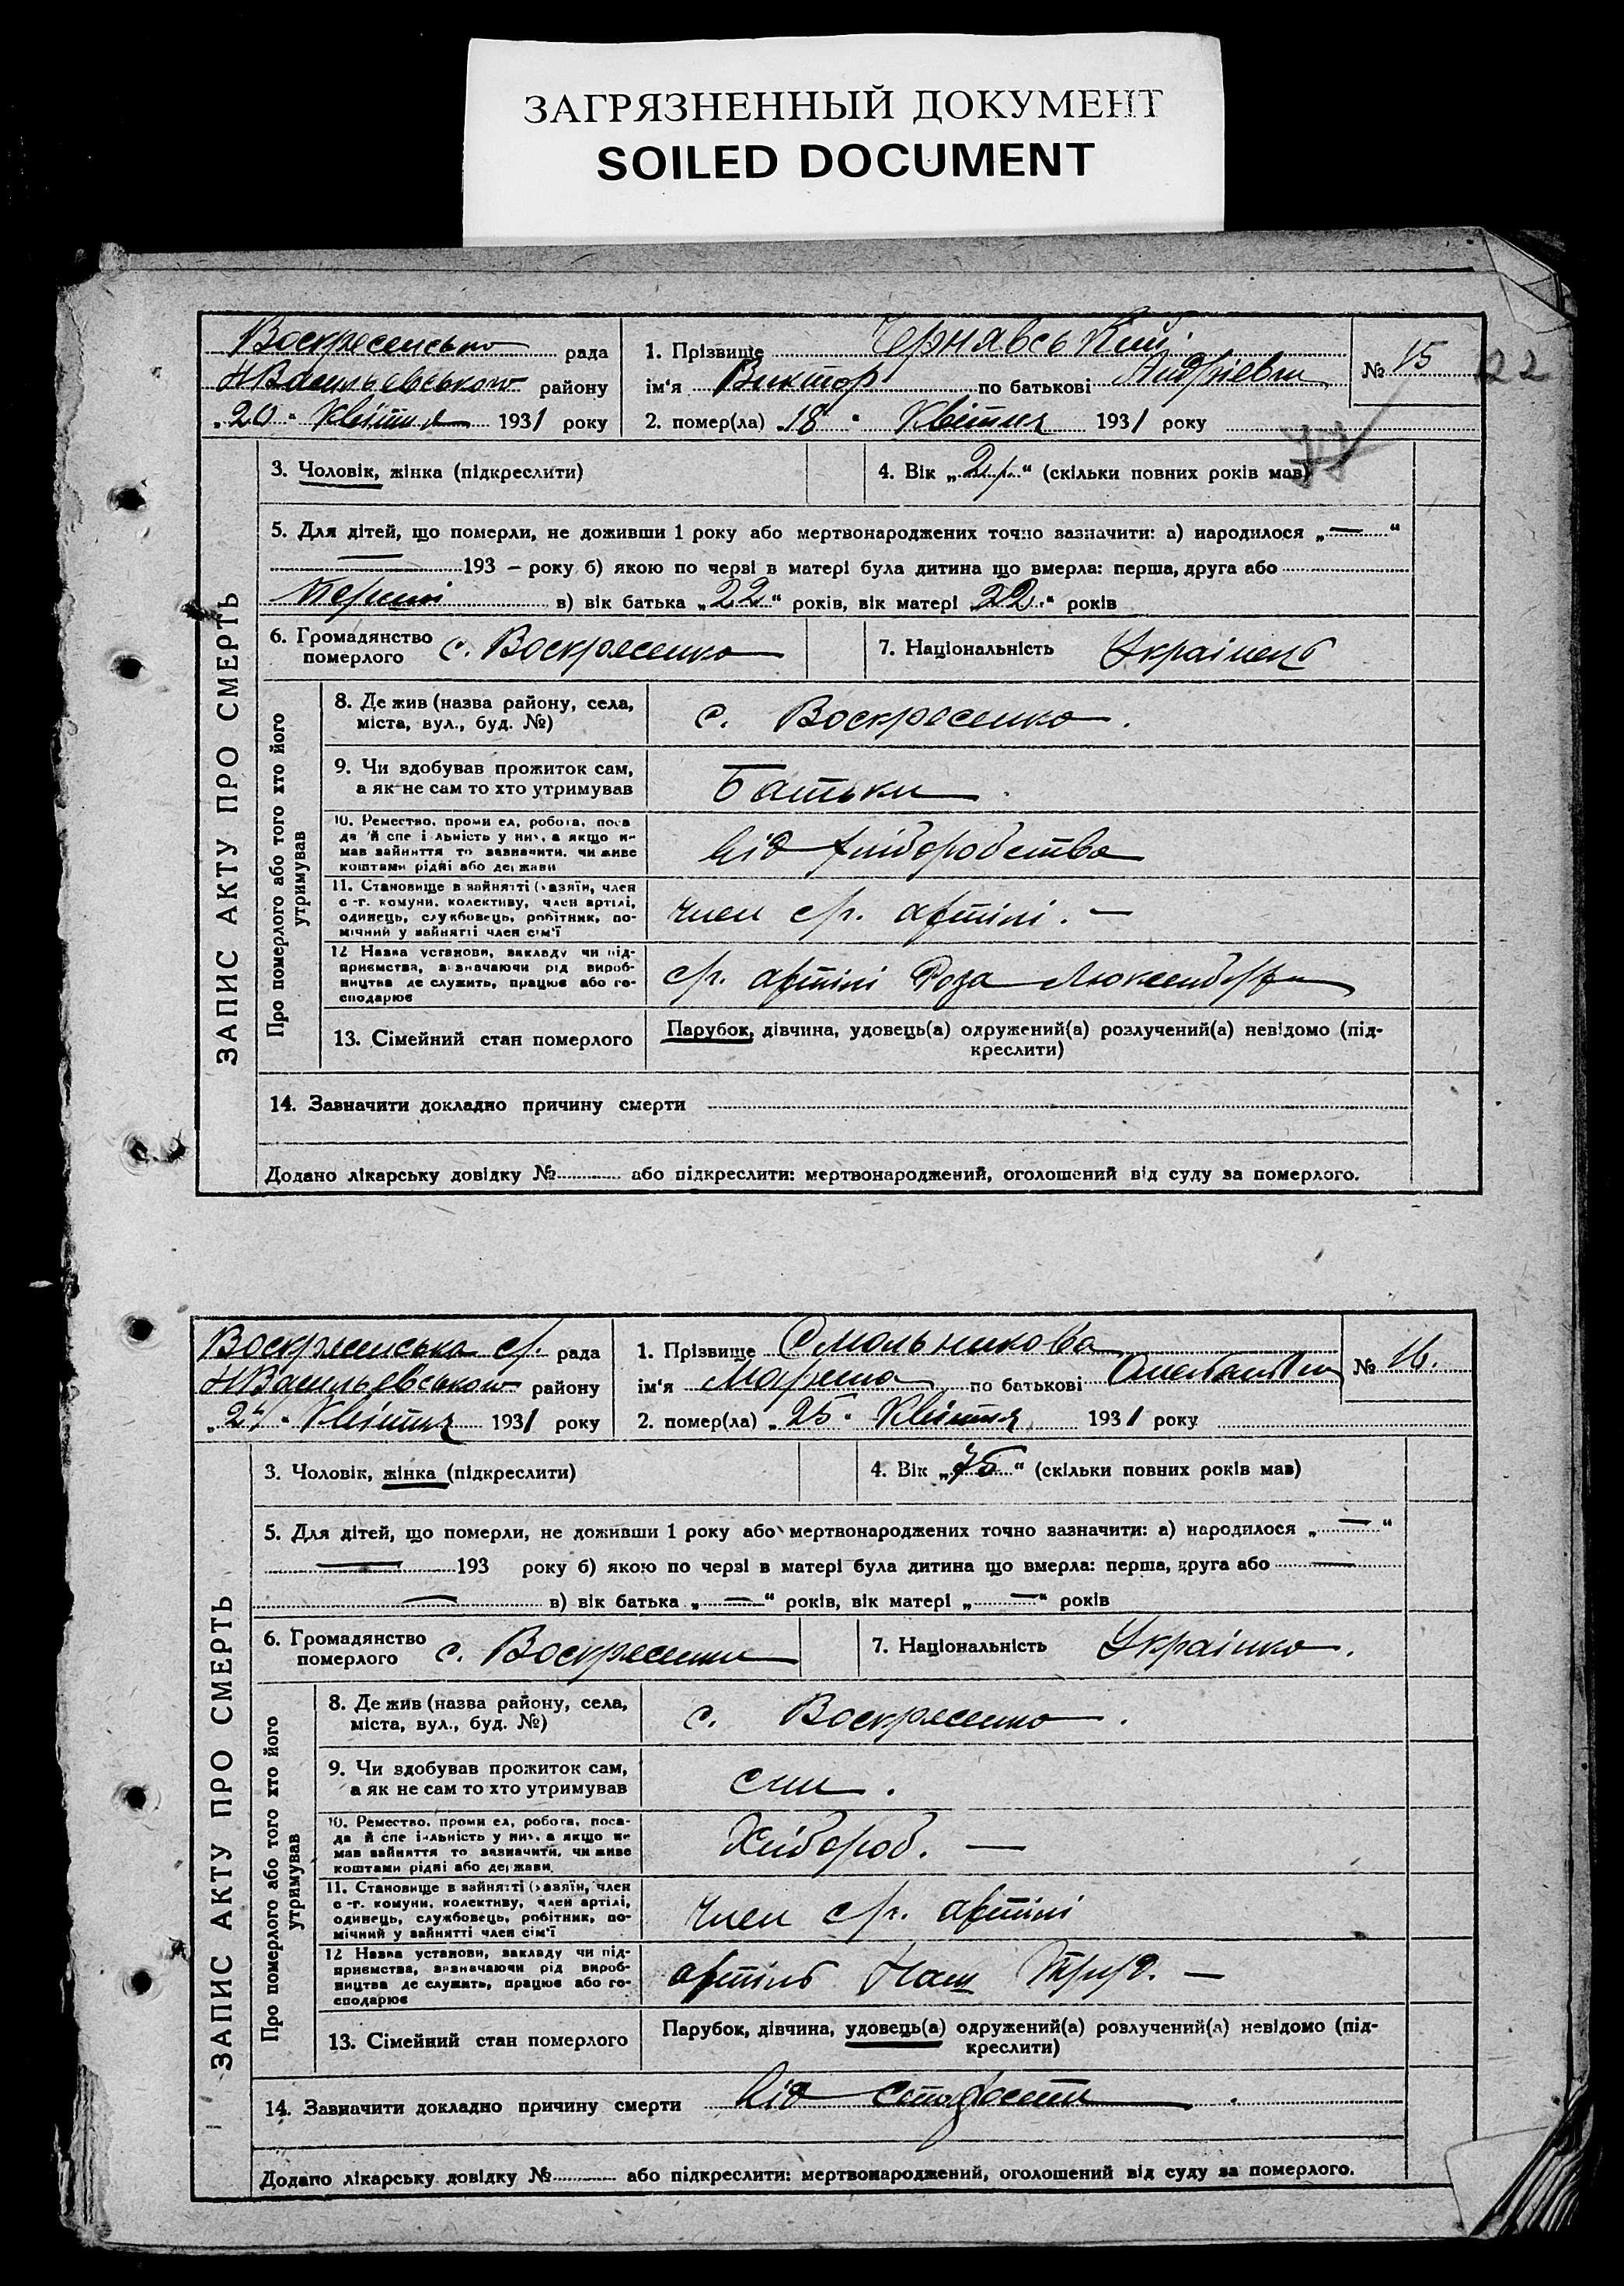 ЗАГРЯЗНЕННЫЙ ДОКУМЕНТ
SOILED DOCUMENT
22
ЗАПИС АКТУ ПРО СМЕРТЬ
Воскресенсько рада
НВасильевського району
„20" Квітня 1931 року
1. Прізвище Чернявський
ім'я Виктор по батькові Андрієвич
2. помер(ла) 18" Квітня 1931 року
№ 15
3. Чоловік, жінка (підкреслити)
4. Вік „2 р." (скільки повних років мав)
5. Для дітей, що померли, не доживши 1 року або мертвонароджених точно зазначити: а) народилося „—"
— 193 – року б) якою по черві в матері була дитина що вмерла: перша, друга або
в) вік батька „22" років, вік матері „22" років
6. Громадянство
померлого с. Воскресенка
7. Національність Українець
Про померлого або того хто його
утримував
8. Де жив (назва району, села,
міста, вул., буд. №)
с. Воскресенка.
9. Чи здобував прожиток сам,
а як не сам то хто утримував
Батьки
10. Ремество, проми ел, робота, поса
да й спе і льність у ни›, а якщо не
мав зайняття то зазначити, чи живе
коштами рідні або держави
Від хліборобства
11. Становище в зайнятті (хазяїн, член
с -г. комуни, колективу, член артілі,
одинець, службовець, робітник, по-
мічний у зайнятті член сім'ї
член с/г. артілі. —
12 Назва установи, закладу чи під-
приємства, визначаючи рід вироб-
ництва де служить, працює або го-
сподарює
с/г. артілі Роза Люксембурга
13. Сімейний стан померлого
Парубок, дівчина, удовець(а) одружений(а) розлучений(а) невідомо (під-
креслити)
14. Зазначити докладно причину смерти
Додано лікарську довідку № або підкреслити: мертвонароджений, оголошений від суду за померлого.
ЗАПИС АКТУ ПРО СМЕРТЬ
Воскресенська с/г. рада
НВасильевського району
„24" Квітня 1931 року
1. Прізвище Смольникова
ім'я по батькові
2. помер(ла) „25" Квітня 1931 року
№ 16.
3. Чоловік, жінка (підкреслити)
4. Вік „75" (скільки повних років мав)
5. Для дітей, що померли, не доживши 1 року або мертвонароджених точно зазначити: а) народилося „—"
— 193 року б) якою по черзі в матері була дитина що вмерла: перша, друга або —
— в) вік батька „—" років, вік матері „—" років
6. Громадянство
померлого с. Воскресенка
7. Національність Українка.
Про померлого або того хто його
утримував
8. Де жив (назва району, села,
міста, вул., буд. №)
с. Воскресенка.
9. Чи здобував прожиток сам,
а як не сам то хто утримував
син.
10. Ремество, проми ел, робота, поса-
да й спе іяльність у ни›, а якщо не
мав зайняття то зазначити, чи живе
коштами рідні або держави.
Хлібороб. —
11. Становище в зайнятті (хазяїн, член
с -г. комуни, колективу, член артілі,
одинець, службовець, робітник, по-
мічний у зайнятті член сім'ї
член с/г. артілі
12 Назва установи, закладу чи під-
приємства, визначаючи рід вироб-
ництва де служить, працює або го-
сподарює
артіль Наш Труд. —
13. Сімейний стан померлого
Парубок, дівчина, удовець(а) одружений(а) розлучений(а) невідомо (під-
креслити)
14. Зазначити докладно причину смерти Від старости.
Додано лікарську довідку № або підкреслити: мертвонароджений, оголошений від суду за померлого.